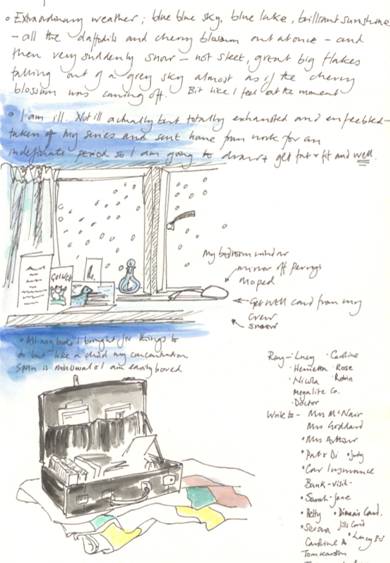 • Extraordinary weather; blue blue sky, blue lake, brilliant sunshine
- all the daffodils and cherry blossom out at once - and
then very suddenly snow - not sleet, great big flakes
falling out of a grey sky almost as if the cherry
blossom was coming off. Bit like I feel at the moment
• I am ill. Not ill actually but totally exhausted and enfeebled -
taken off my series and sent home from work for an
indefinite period so I am going to draw & get fat & fit and well.
My bedroom window
mirror off Perrys
Moped
Get Well card from my
Crew
snow
Get Well
• All my books I brought for things to
do but like a child my concentration
span is minimal & I am easily bored
Ring - Lucy • Caroline
• Henrietta Rose
• Nicola • Robin
Megalite Co.
• Doctor
Write to - Mrs McNair
Mrs Goddard
• Mrs
• Pat & Di • Judy
• Car Insurance
Bank - visit -
• Sarah-Jane
• Hetty •
• Serena Jill's Card
Caroline A • Lucy
Tom